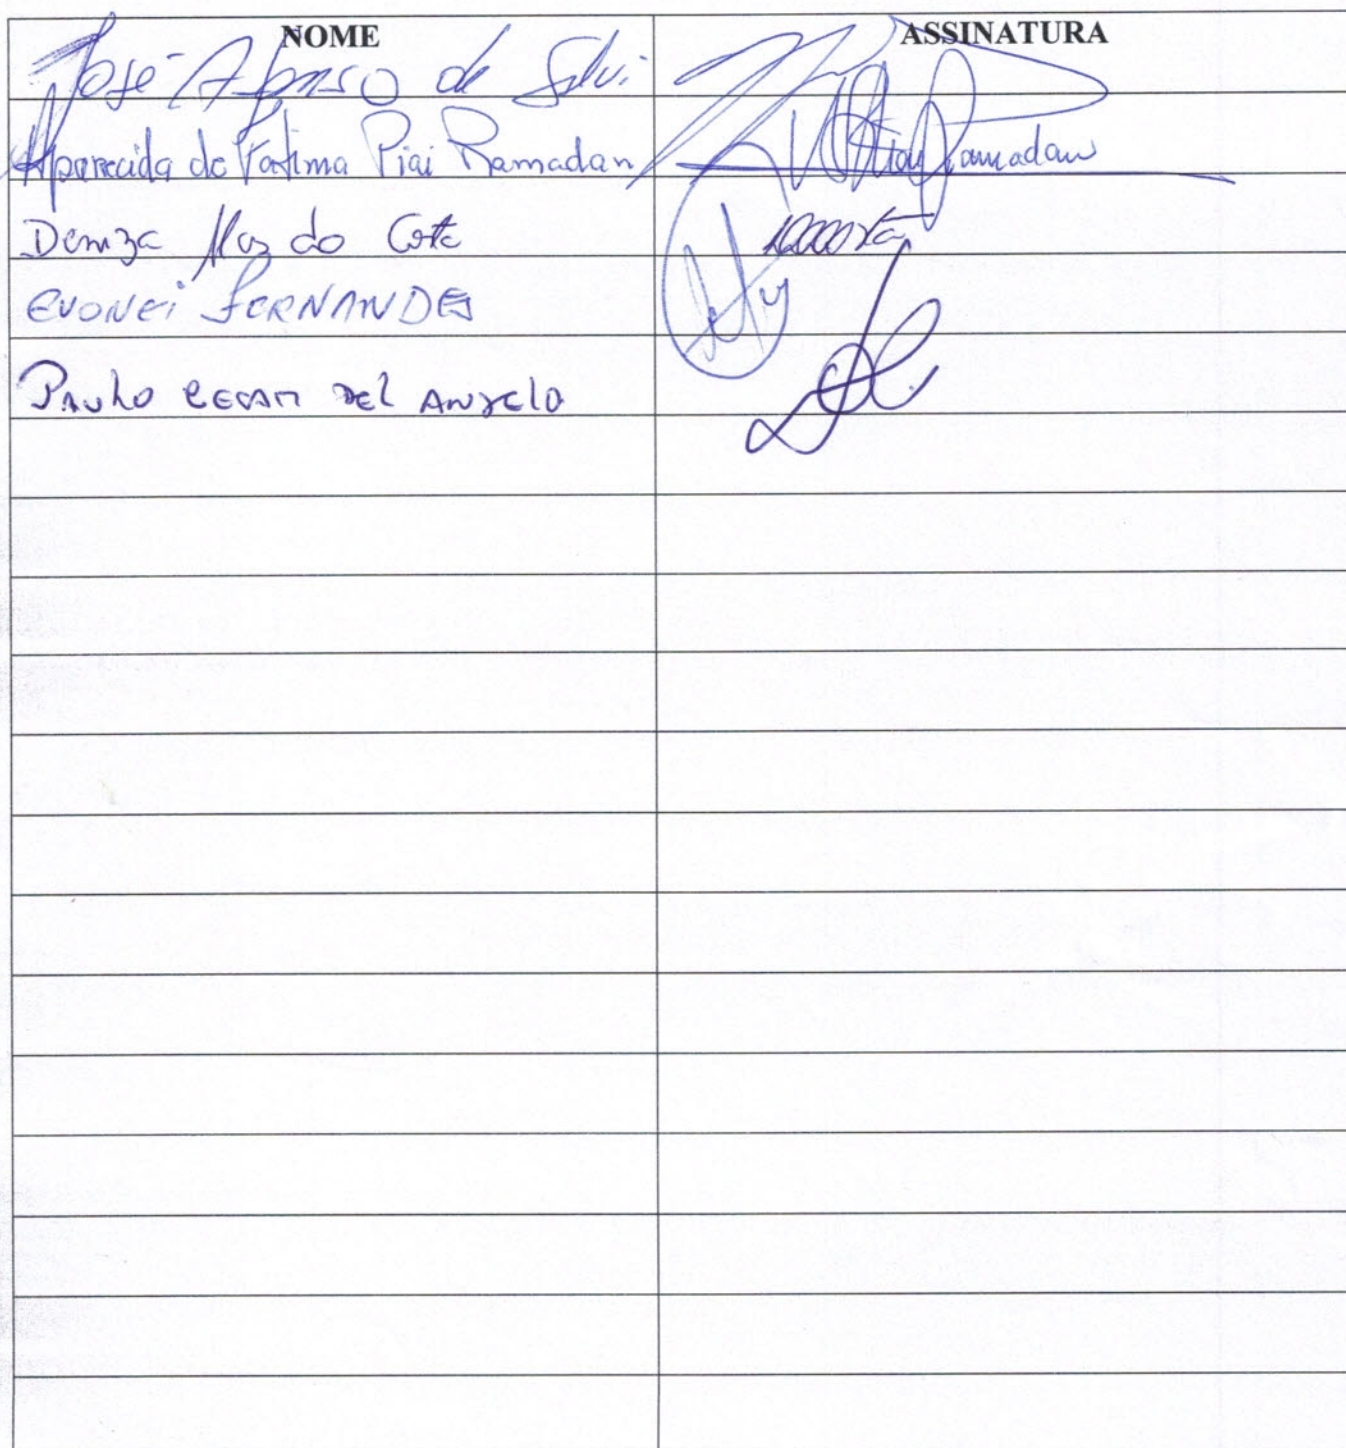 NOME ASSINATURA
José Afonso de Silvi
Aparecida de Fatima Piai Ramadan Piai Ramadan
Deniza do Costa
EVONEI FERNANDES
PAULO CESAR DEL ANGELO